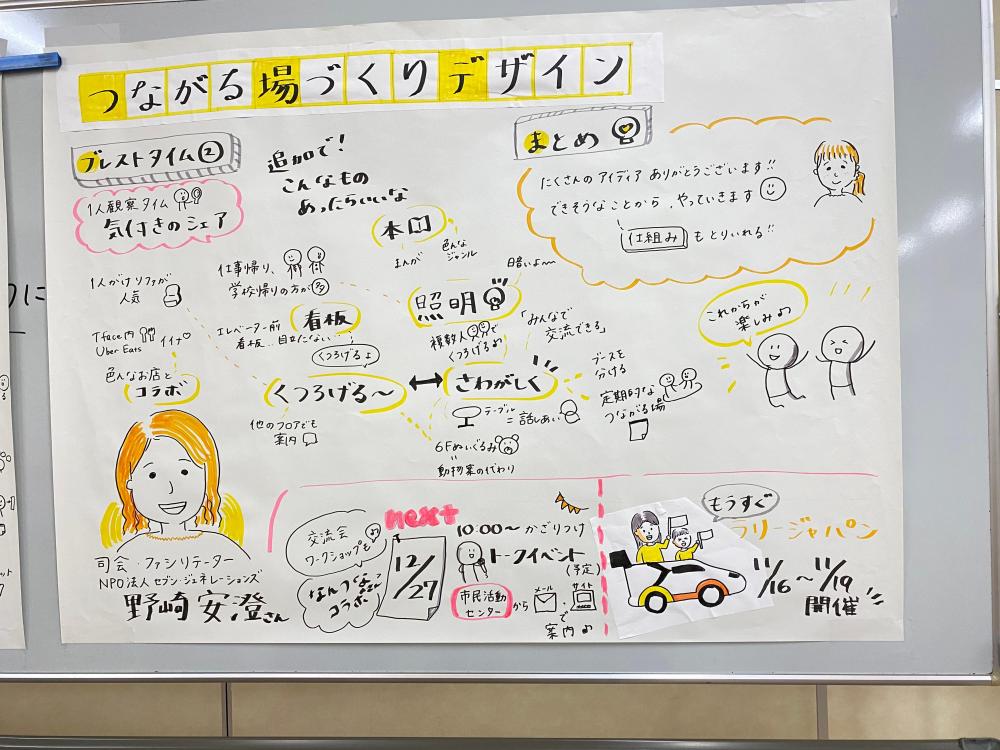 つながる場づくりデザイン
ブレストタイム②
1人観察タイム
気付きのシェア
追加で!
こんなもの
あったらいいな
まとめ
たくさんのアイディアありがとうございます!!
できそうなことから、やっていきます
仕組みもとりいれる!!
本
まんが
色んな
ジャンル
1人がけソファが
人気
仕事帰り、
学校帰りの方が
暗いよ〜
照明
複数人で
くつろげる♪
「みんなで
交流できる」
これからが
楽しみ♪
T-face内
Uber Eats
イイナ♡
エレベーター前
看板…目立たない…
看板
くつろげるよ
色んなお店と
コラボ
くつろげる〜
さわがしく
ブースを
分ける
他のフロアでも
案内
テーブル
=話しあい
定期的な
つながる場
6Fぬいぐるみ
動物案の代わり
司会・ファシリテーター
NPO法人セブン・ジェネレーションズ
野崎安澄さん
交流会
ワークショップも♪
コラボ
next
12/27
10:00〜かざりつけ
トークイベント
(予定)
市民活動
センター
から
メール
サイト
で
案内♪
もうすぐ
ラリージャパン
11/16〜11/19
開催